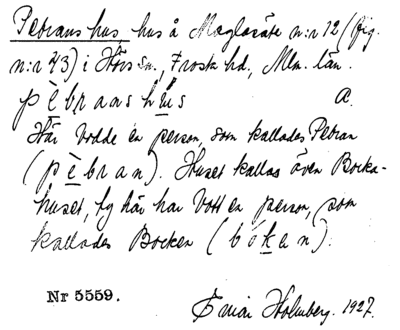 Petrans hus, hus å Maglasäte n:r 12 (fig.
n:r 43) i Hörs sn., Frosta hd., Mlm. län.
pèbrans hus A.
Här bodde en person, som kallades Petran
(pèbran). Huset kallas även Bocka-
huset, ty här har bott en person, som
kallades Bocken (bókan).
Nr 5559.
Einar Holmberg. 1927.